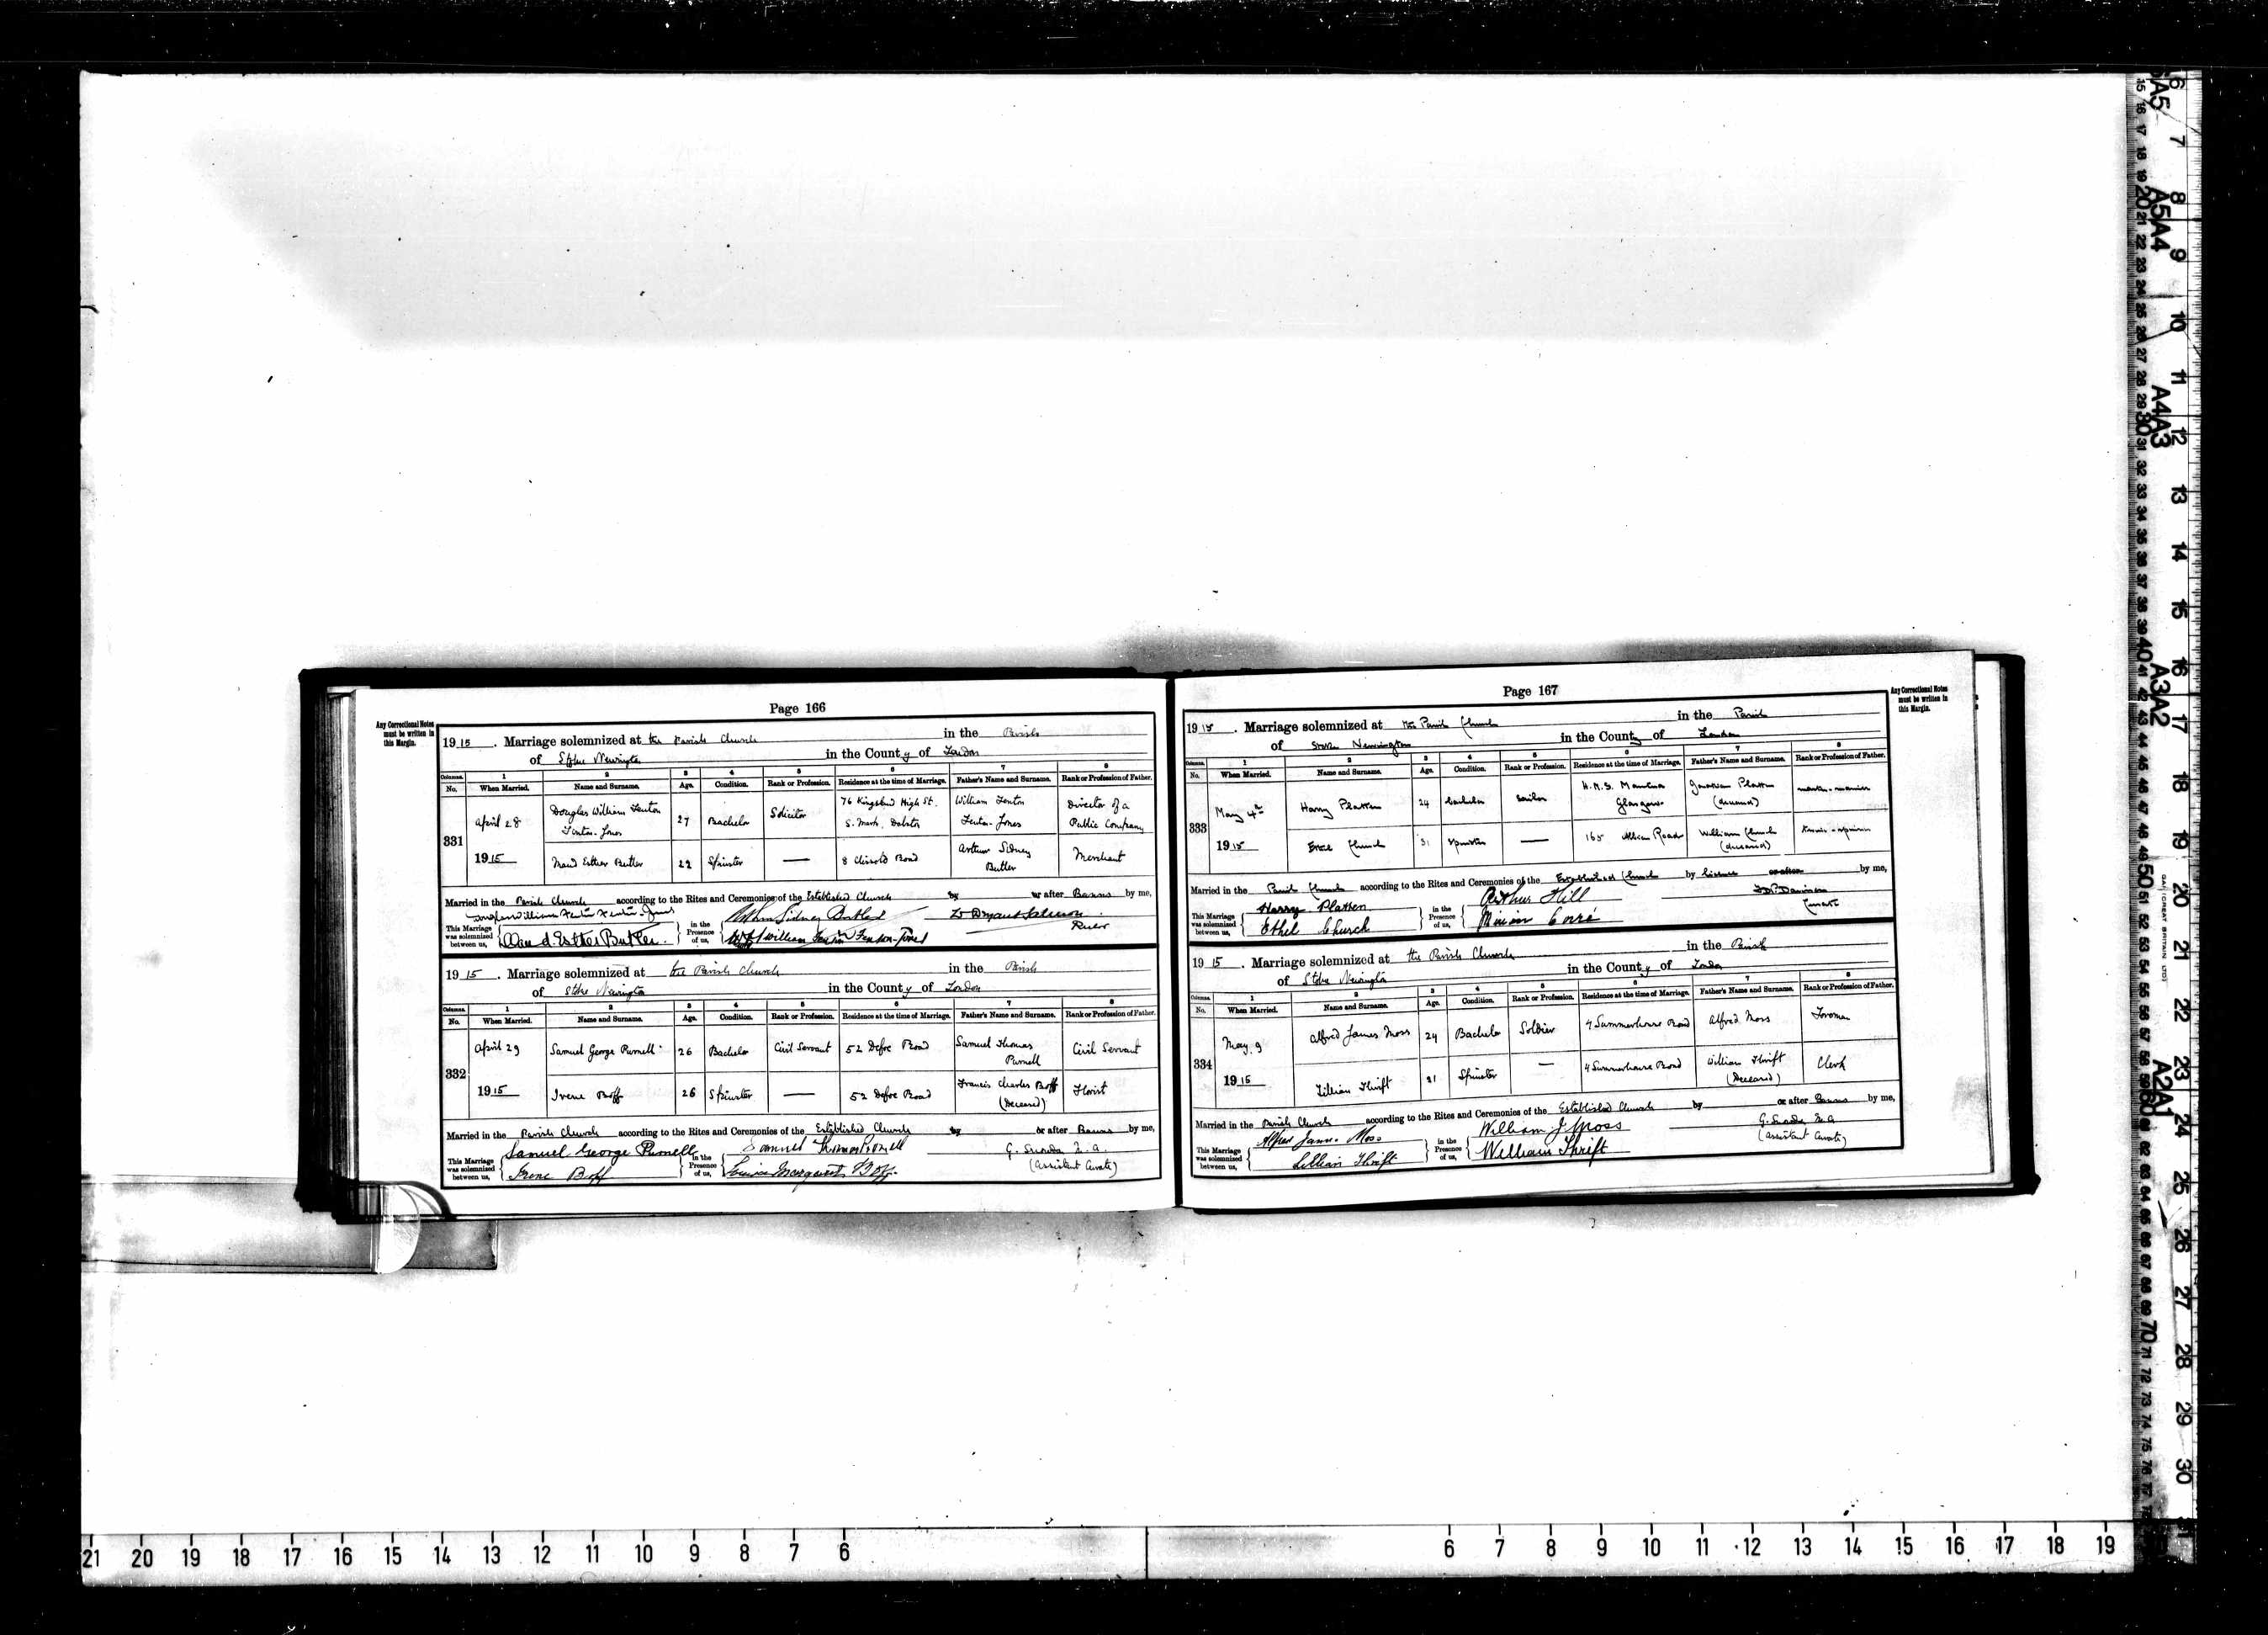 Page 166
Any Correctional Notes
must be written in
this Margin.
1915. Marriage solemnized at the Parish Church in the Parish
of Stoke Newington in the County of London
Columns. 1 2 3 4 5 6 7 8
No. When Married. Name and Surname. Age. Condition. Rank or Profession. Residence at the time of Marriage. Father's Name and Surname. Rank or Profession of Father.
331
April 28 Douglas William Fenton Fenton-Jones 27 Bachelor Solicitor 76 Kingsland High St. S. Mark, Dalston William Fenton Fenton-Jones Director of a Public Company
1915 Maud Esther Butler 22 Spinster — 8 Clissold Road Arthur Sidney Butler Merchant
Married in the Parish Church according to the Rites and Ceremonies of the Established Church by or after Banns by me,
This Marriage was solemnized between us, Douglas William Fenton Fenton-Jones
Maud Esther Butler.
in the Presence of us, Arthur Sidney Butler
William Fenton Fenton-Jones
Rector
1915. Marriage solemnized at the Parish Church in the Parish
of Stoke Newington in the County of London
Columns. 1 2 3 4 5 6 7 8
No. When Married. Name and Surname. Age. Condition. Rank or Profession. Residence at the time of Marriage. Father's Name and Surname. Rank or Profession of Father.
332
April 29 Samuel George Purnell 26 Bachelor Civil Servant 52 Defoe Road Samuel Thomas Purnell Civil Servant
1915 Irene Boff 26 Spinster — 52 Defoe Road Francis Charles Boff (Deceased) Florist
Married in the Parish Church according to the Rites and Ceremonies of the Established Church by or after Banns by me,
This Marriage was solemnized between us, Samuel George Purnell
Irene Boff
in the Presence of us, Samuel Thomas Purnell
Louisa Margaret Boff.
G. M.A.
(Assistant Curate)
Page 167
Any Correctional Notes
must be written in
this Margin.
1915. Marriage solemnized at the Parish Church in the Parish
of Stoke Newington in the County of London
Columns. 1 2 3 4 5 6 7 8
No. When Married. Name and Surname. Age. Condition. Rank or Profession. Residence at the time of Marriage. Father's Name and Surname. Rank or Profession of Father.
333
May 4th Harry Platten 24 bachelor sailor H.M.S. Glasgow Platten (deceased)
1915 Ethel Church 31 spinster — 165 Albion Road William Church (deceased)
Married in the Parish Church according to the Rites and Ceremonies of the Established Church by licence or after by me,
This Marriage was solemnized between us, Harry Platten
Ethel Church
in the Presence of us, Arthur Hill
Miriam Corré
Curate
1915. Marriage solemnized at the Parish Church in the Parish
of Stoke Newington in the County of London
Columns. 1 2 3 4 5 6 7 8
No. When Married. Name and Surname. Age. Condition. Rank or Profession. Residence at the time of Marriage. Father's Name and Surname. Rank or Profession of Father.
334
May 9 Alfred James Moss 24 Bachelor Soldier 4 Summerhouse Road Alfred Moss Foreman
1915 Lillian Thrift 21 Spinster — 4 Summerhouse Road William Thrift (Deceased) Clerk
Married in the Parish Church according to the Rites and Ceremonies of the Established Church by or after Banns by me,
This Marriage was solemnized between us, Alfred James Moss
Lillian Thrift
in the Presence of us, William J Moss
William Thrift
G. M.A.
(Assistant Curate)
21 20 19 18 17 16 15 14 13 12 11 10 9 8 7 6
6 7 8 9 10 11 12 13 14 15 16 17 18 19
6 7 8 9 10 11 12 13 14 15 16 17 18 19 20 21 22 23 24 25 26 27 28 29 30
A5 A5A4 A4A3 A3A2 A2A1